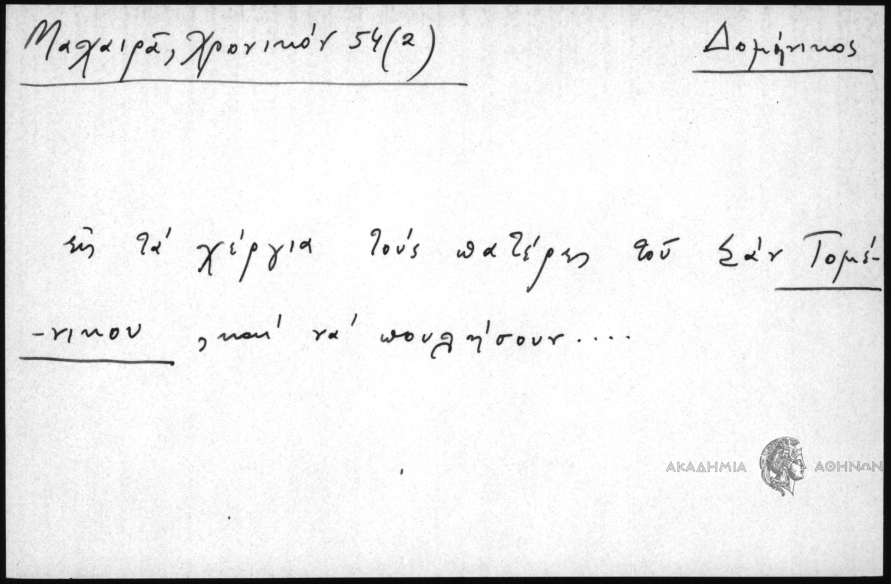 Μαχαιρᾶ, Χρονικόν 54(2)
Δομήνικος
εἰς τά χέργια τούς πατέρες τοῦ Σάν Τομέ-
-νικου, καί νά πουλήσουν....
ΑΚΑΔΗΜΙΑ ΑΘΗΝΩΝ